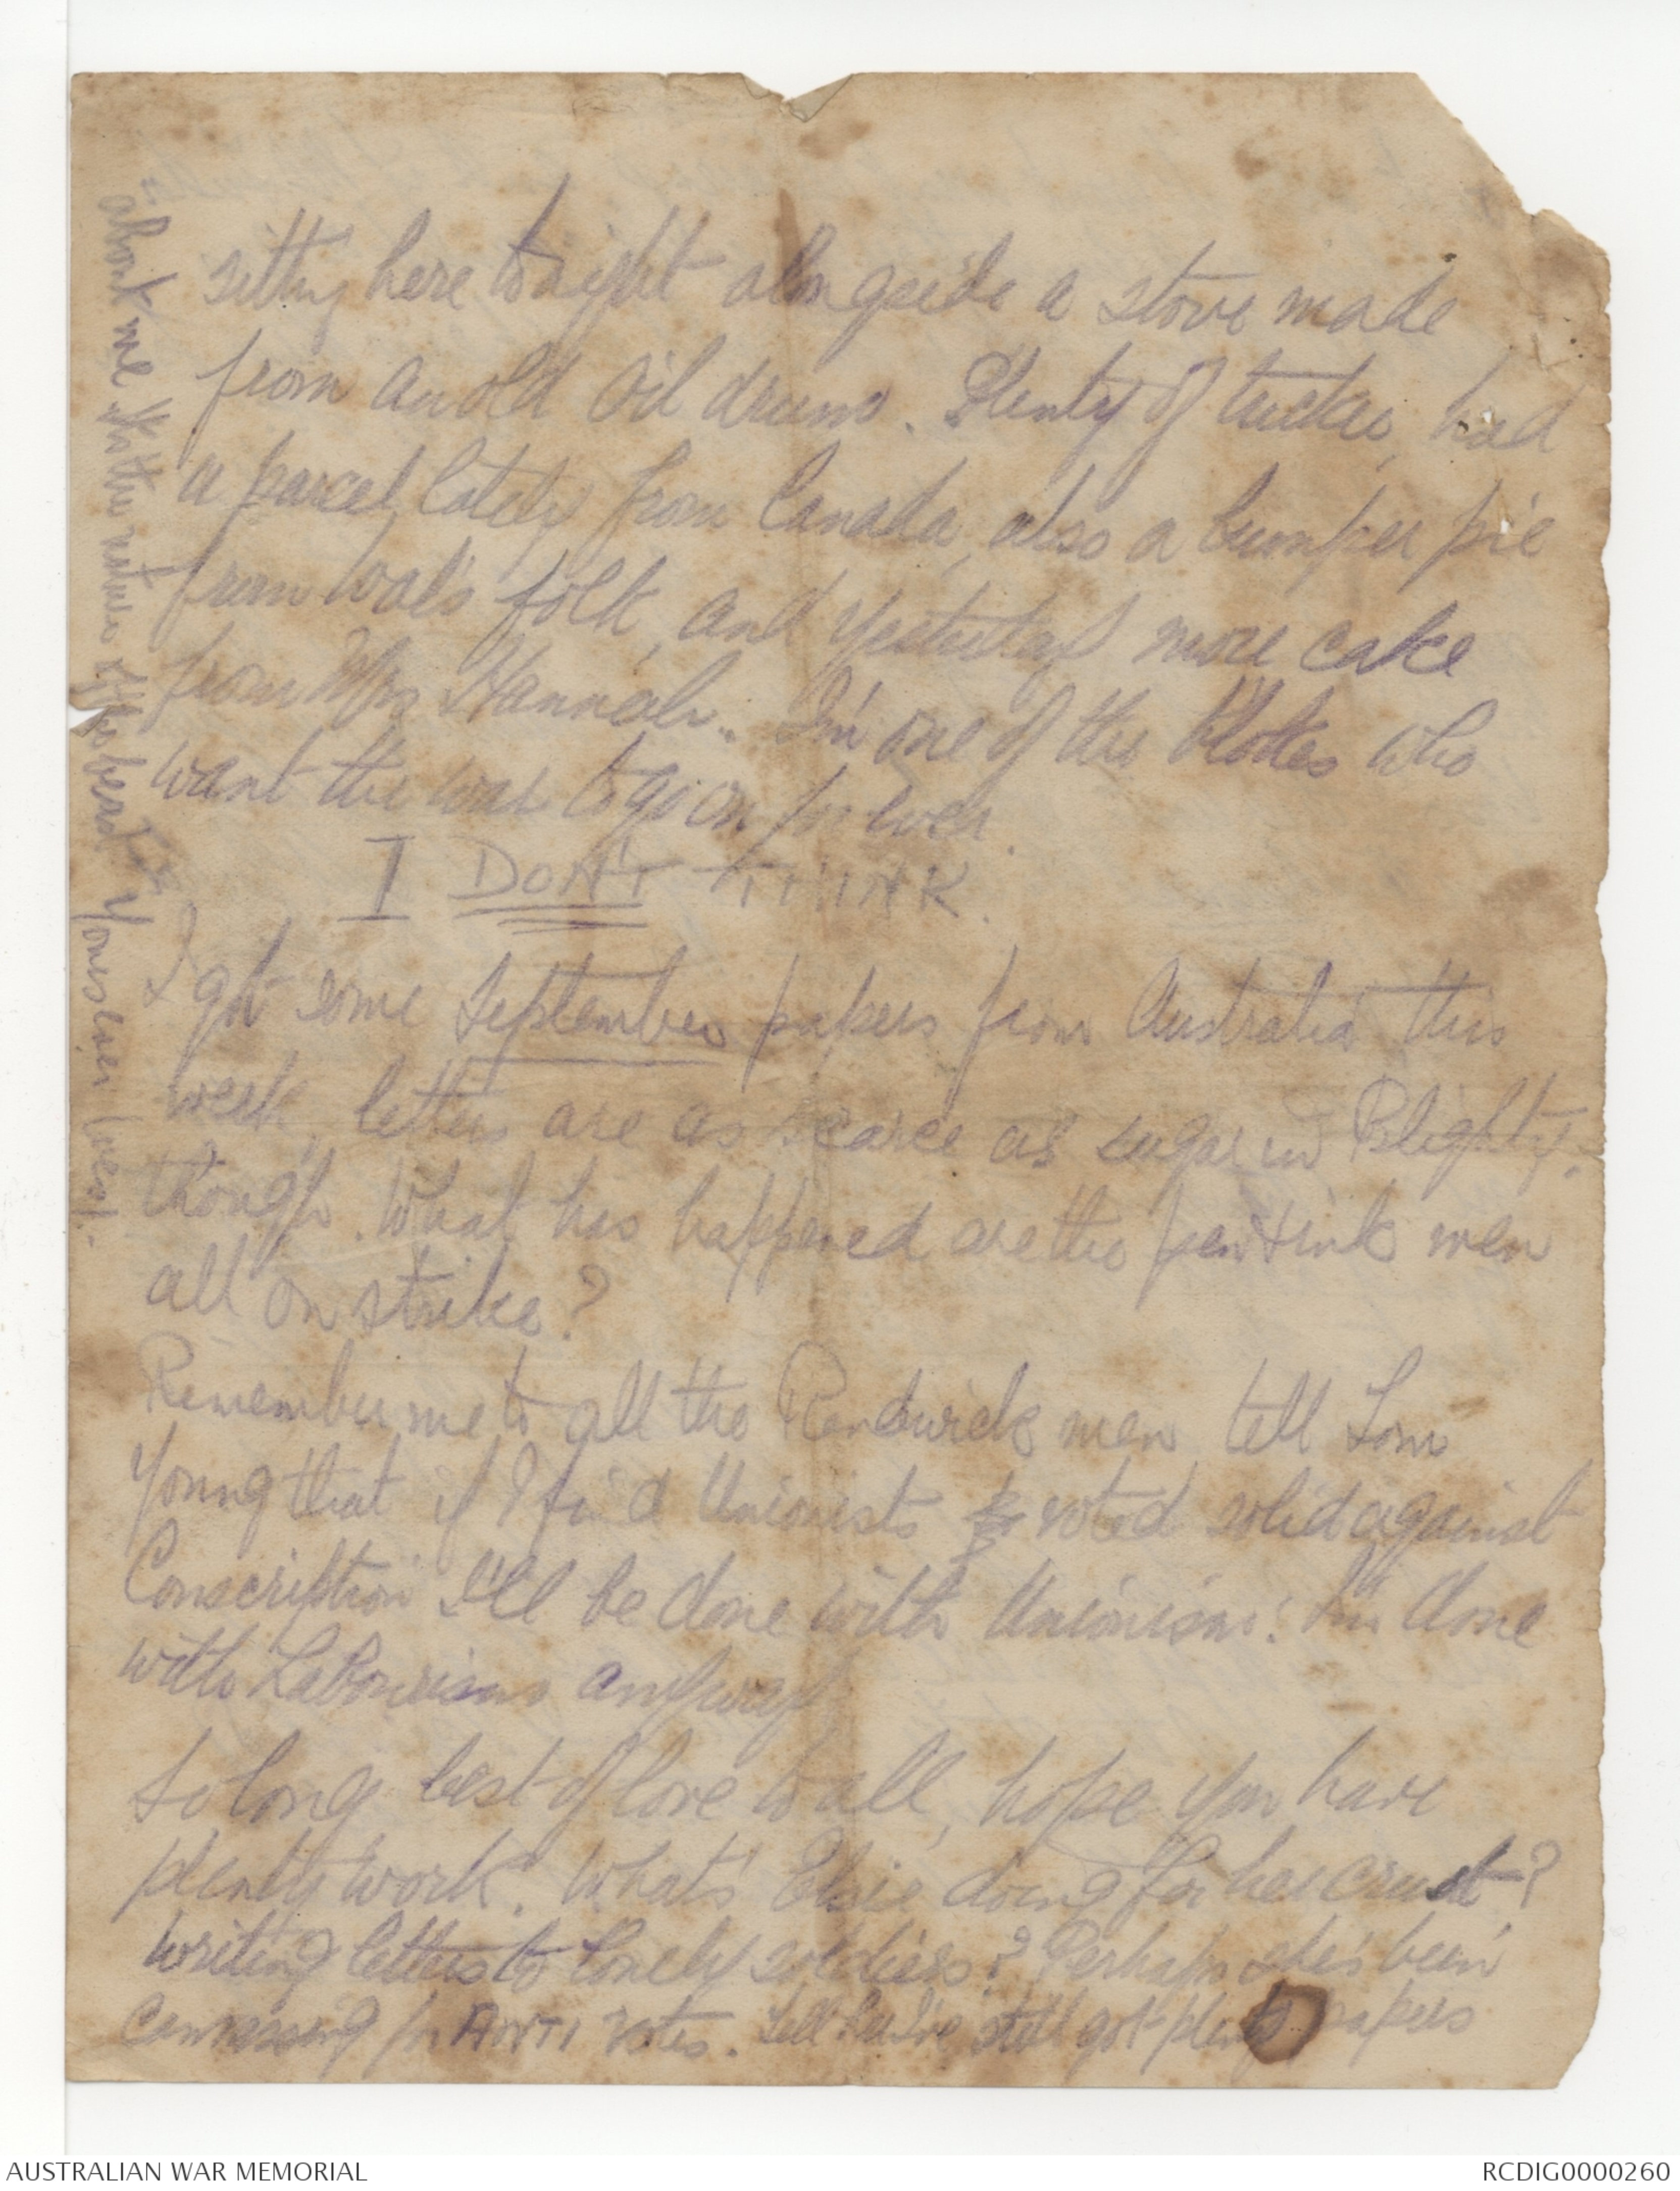 sitting here tonight alongside a stove made
from an old oil drum. Plenty of tucker, had
a parcel lately from Canada, also a bumper pie
from Wal's folk, and yesterday more cake
from Mrs Hannah.. I'm one of the blokes who
want the war to go on for ever.
I DON'T THINK.
I got some September papers from Australia this
week, letters are as scarce as sugar in Blighty.
though. What has happened are the pen & ink men
all on strike?
Remember me to all the Randwick men, tell Tom
Young that if I find Unionists voted solid against
Conscription I'll be done with Unionism. I'm done
with Labourism anyway
So long best of love to all, hope you have
plenty work. What's Elsie doing for her crust?
Writing letters to lonely soldiers? Perhaps she's been
canvassing for ANTI votes. Tell her I've still got plenty papers
about me in the nature of Yours ever
AUSTRALIAN WAR MEMORIAL
RCDIG0000260